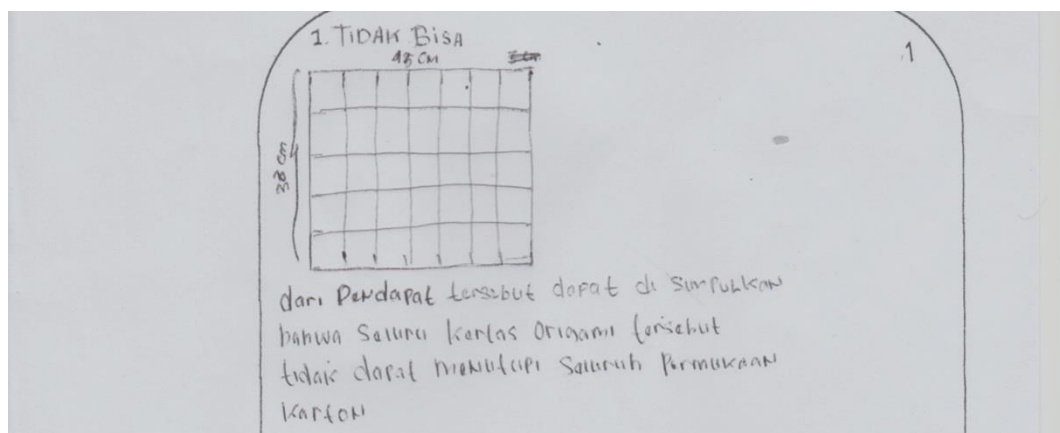 1. TiDAK BiSA
1
48 CM
38 cm
dari Pendapat tersebut dapat di simpulkan
bahwa Seluru kertas Origami tersebut
tidak dapat menutupi Seluruh Permukaan
Karton